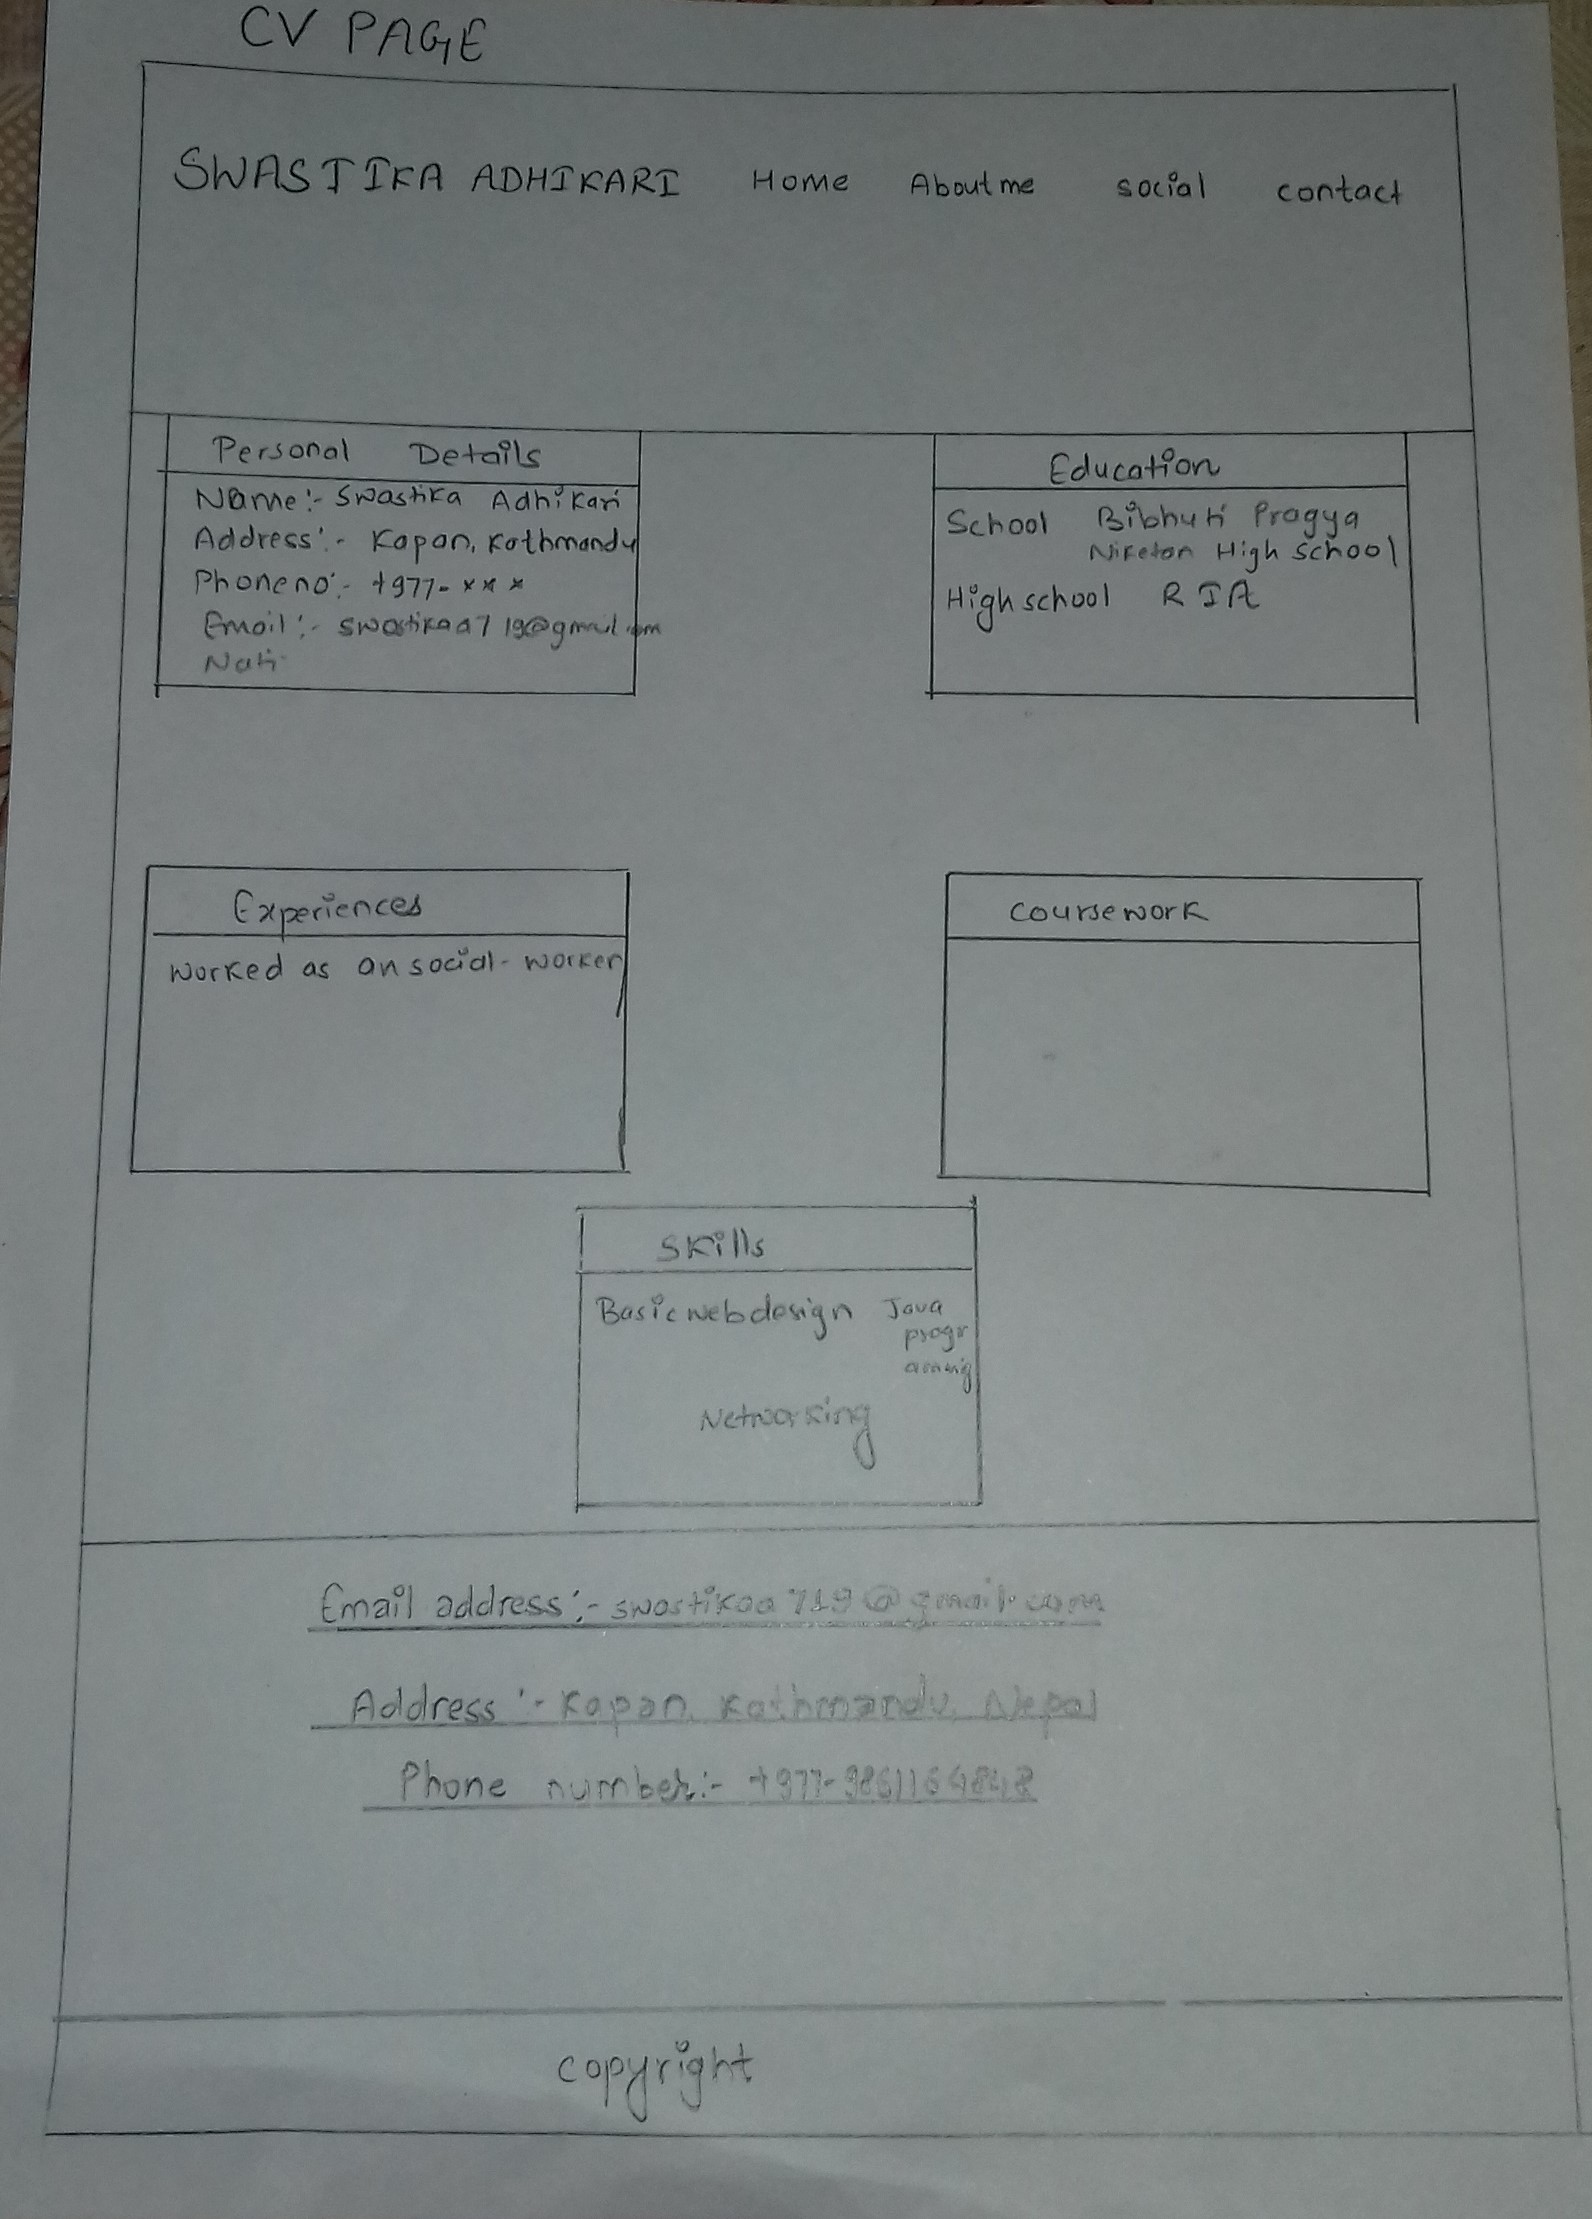 CV PAGE
SWASTIKA ADHIKARI Home About me social contact
Personal Details
Name:- Swastika Adhikari
Address:- Kapan, Kathmandu
Phone no:- +977- ***
Email:- swastikaa719@gmail.com
Nati
Education
School Bibhuti Pragya
Niketan High school
High school RIA
Experiences
Worked as an social-worker
Coursework
Skills
Basic web design Java
progr
amming
Networking
Email address:- swastikaa719@gmail.com
Address:- Kapan, Kathmandu, Nepal
Phone number:- +977-9861164848
copyright